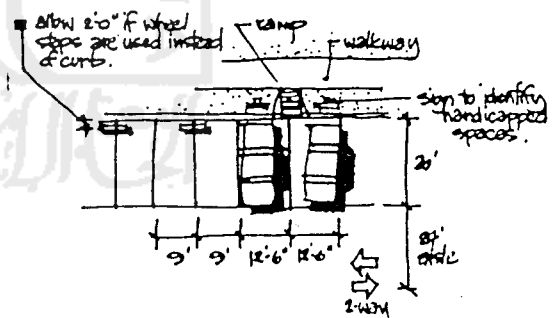 Allow 2'-0" if wheel
stops are used instead
of curb.
ramp
walkway
sign to identify
handicapped
spaces.
20'
9'
9'
12'-6"
12'-6"
aisle
2-way